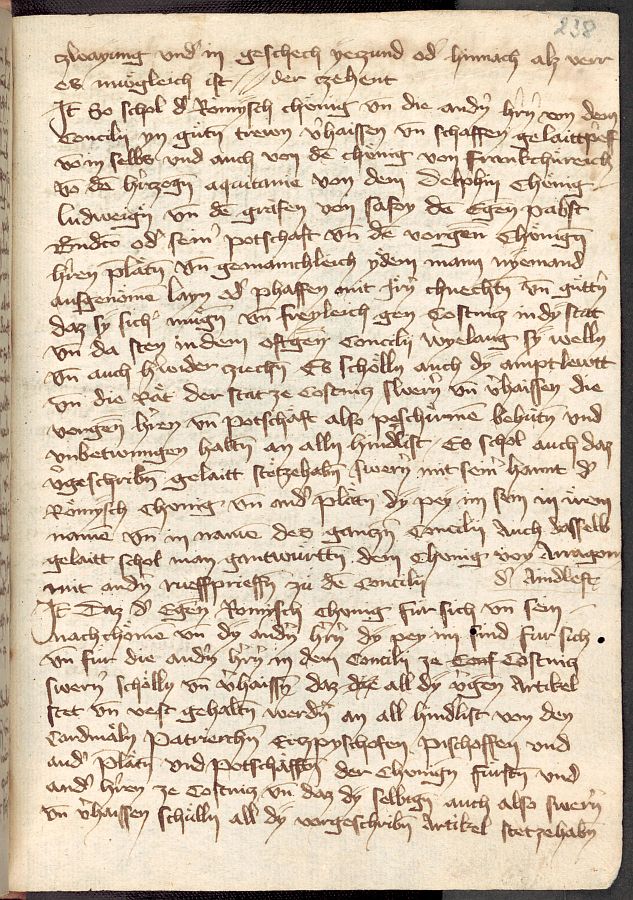 238
czwayung vnd in geschech yeczund od hinnach alz verr
es mügleich ist // der czehent
It So schol d Romysch chönig vn die andn hrn von dem
Concilii yn gütn trewn vhaissen vn schaffen gelaittprief
vom selbs vnd auch von de chönig von Frankchüreich
vo de hrczogn aquitanie von dem Delphin Chönig
ludweign vn de grafen von safoy de Egen pabst
Bndco od seinr potschaft vn de vorgen Chönign
hren platn vn gemainchleich ydem mann nyemand
ausgenöme layn od phaffen mit irn chnechtn vn güttn
daz sy sich mügn vn freyleich gen Costnicz in dy stat
vn da sten in dem oftgen Concilii wyelang sy welln
vn auch hwider cziechn Es schölln auch dy amptlewtt
vn die Rät der stat ze Costnicz swern vn vhaissen die
vorgen hren vn potschaft also peschirmen behütn vnd
vnbetwungen haltn an alln hindlist Es schol auch daz
vgeschribn gelaitt stetzehabn swern mit seinr hannt d
Römysch chönig vn andr plätn dy pey im sein in irem
name vn in name des ganczn Concilii Auch dasselb
gelaitt schol man gantwurttn dem Chönig von Arragon
mit andn rueffprieffn zu de Concilii d Aindleft
It Daz d Egen Romysch chönig für sich vn sein
nachchöme vn dy andn hrn dy pey im sind für sich
vn für die andn hrn in dem Concilii ze Conf Costnicz
swern schölln vn vhaissn daz die all dy vgen Artikel
stet vn vest gehaltn werdn an all hindlist von den
Cardinaln Patriarchn Erczpyschofen Pischoffen vnd
andr Platn vnd potschafftn der chönign fürstn vnd
andr hren ze Costnicz vn daz dy selbign auch also swern
vn vhaissen schülln all dy vorgeschribn Artikel stetzehabn